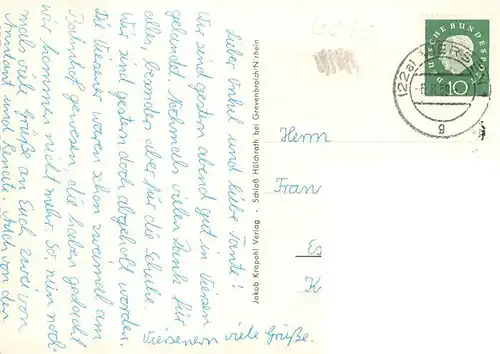 Lieber Onkel und liebe Tante!
Wir sind gestern abend gut in Viersen
gelandet. Nochmals vielen Dank für
alles, besonders aber für die Schuhe.
Wir sind gestern doch abgeholt worden.
Die Viersener waren schon zweimal am
Bahnhof gewesen, die haben gedacht
wir kommen nicht mehr. So nun noch-
mals viele Grüße an Euch zwei von
und Renate. Auch von den
Viersenern viele Grüße.
Jakob Krapohl Verlag · Schloß Hülchrath bei Grevenbroich/N'rhein
DEUTSCHE BUNDESPOST
10
(22a) VIERSEN
g
Herrn
Frau
Es
K